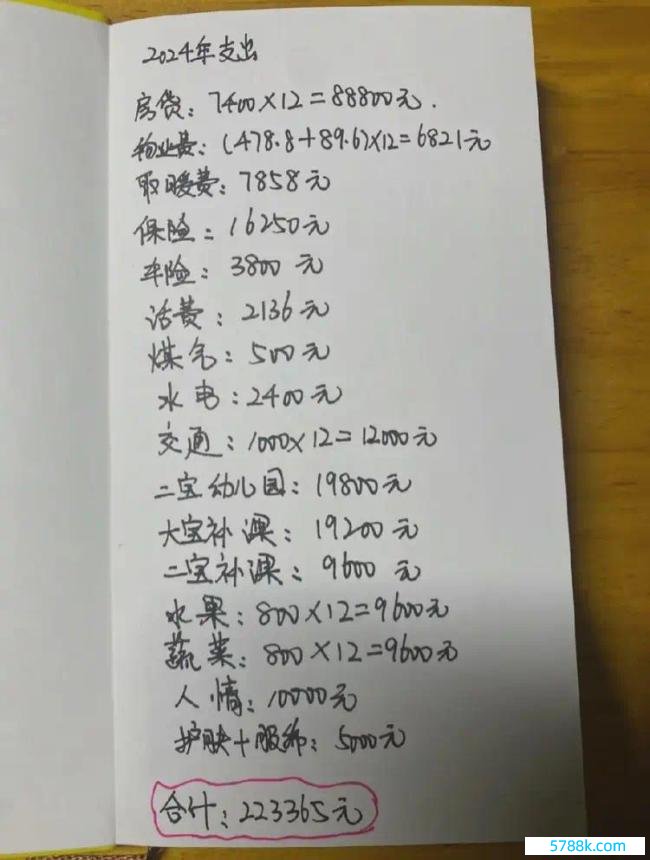 2024年支出
房贷：7400×12=88800元.
物业费：(478.8+89.6)×12=6821元
取暖费：7858元
保险：16250元
车险：3800元
话费：2136元
煤气：500元
水电：2400元
交通：1000×12=12000元
二宝幼儿园：19800元
大宝补课：19200元
二宝补课：9600元
水果：800×12=9600元
蔬菜：800×12=9600元
人情：10000元
护肤+服饰：5000元
合计：223365元
5788k.com